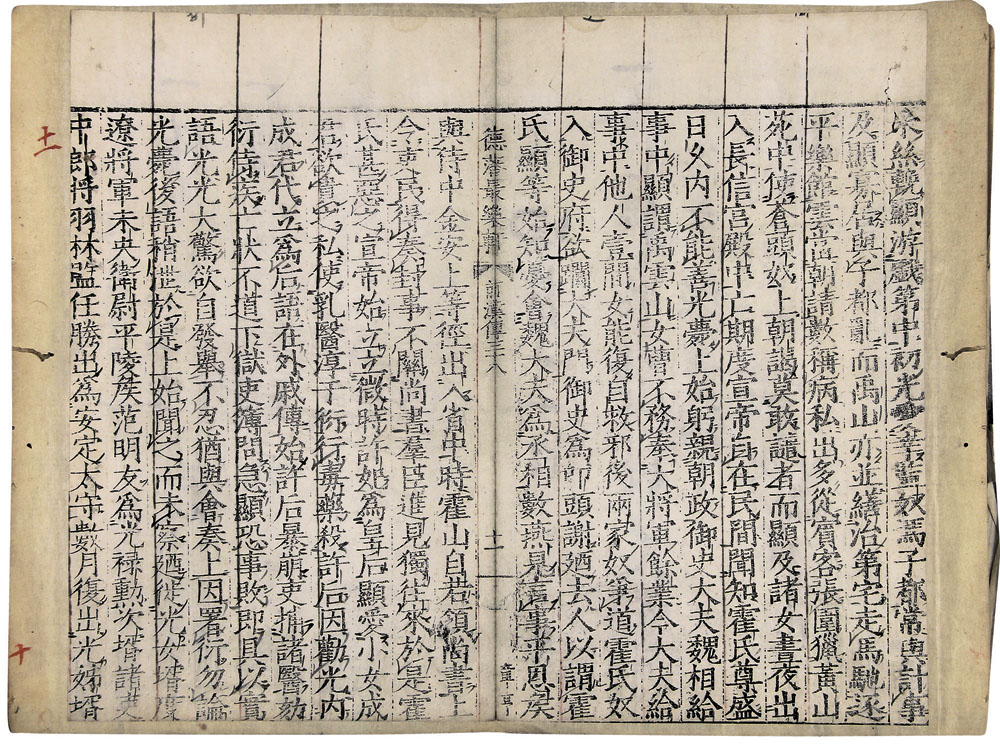 采絲輓顯游戲第中初光愛幸監奴馮子都常與計事
及顯寡居與子都亂而禹山亦並繕治第宅走馬馳逐
平樂館雲當朝請數稱病私出多從賓客張圍獵黃山
苑中使蒼頭奴上朝謁莫敢譴者而顯及諸女晝夜出
入長信宫殿中亡期度宣帝自在民間聞知霍氏尊盛
日久内不能善光薨上始躬親朝政御史大夫魏相給
事中顯謂禹雲山女曹不務奉大將軍餘業今大夫給
事中他人壹間女能復自救邪後兩家奴爭道霍氏奴
入御史府欲躢大夫門御史爲叩頭謝廼去人以謂霍
氏顯等始知憂會魏大夫爲丞相數燕見言事平恩侯
德藩最樂軒 前漢傳三十八 十一
與侍中金安上等徑出入省中時霍山自若領尚書上
令吏民得奏封事不關尚書羣臣進見獨往來於是霍
氏甚惡之宣帝始立立微時許妃爲皇后顯愛小女成
君欲貴之私使乳醫淳于衍行毒藥殺許后因勸光内
成君代立爲后語在外戚傳始許后暴崩吏捕諸醫劾
衍侍疾亡狀不道下獄吏簿問急顯恐事敗即具以實
語光光大驚欲自發舉不忍猶與會奏上因署衍勿論
光薨後語稍泄於是上始聞之而未察廼徙光女壻度
遼將軍未央衛尉平陵侯范明友爲光禄勳次壻諸吏
中郎將羽林監任勝出爲安定太守數月復出光姊壻
十一
十